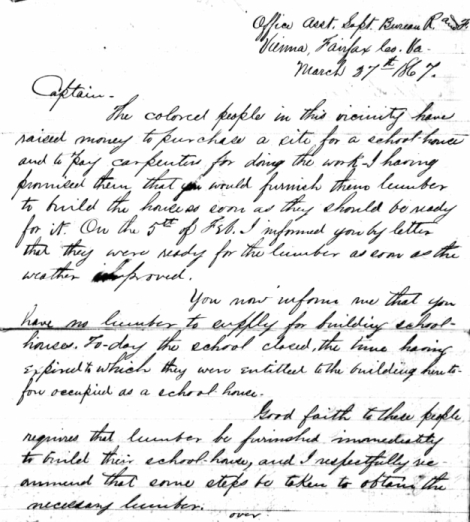 Office Asst. Supt. Bureau R. and F.
Vienna, Fairfax Co. Va.
March 27th 1867.
Captain -
The colored people in this vicinity have
raised money to purchase a site for a school-house
and to pay carpenters for doing the work - I having
promised them that you would furnish them lumber
to build the house so soon as they should be ready
for it. On the 5th of Feb. I informed you by letter
that they were ready for the lumber as soon as the
weather improved.
You now inform me that you
have no lumber to supply for building school-
houses. To-day the school closed, the time having
expired to which they were entitled to the building here to-
fore occupied as a school house.
Good faith to these people
requires that lumber be furnished immediatly
to build their school-house, and I respectfully re
commend that some steps be taken to obtain the
necessary lumber.
over